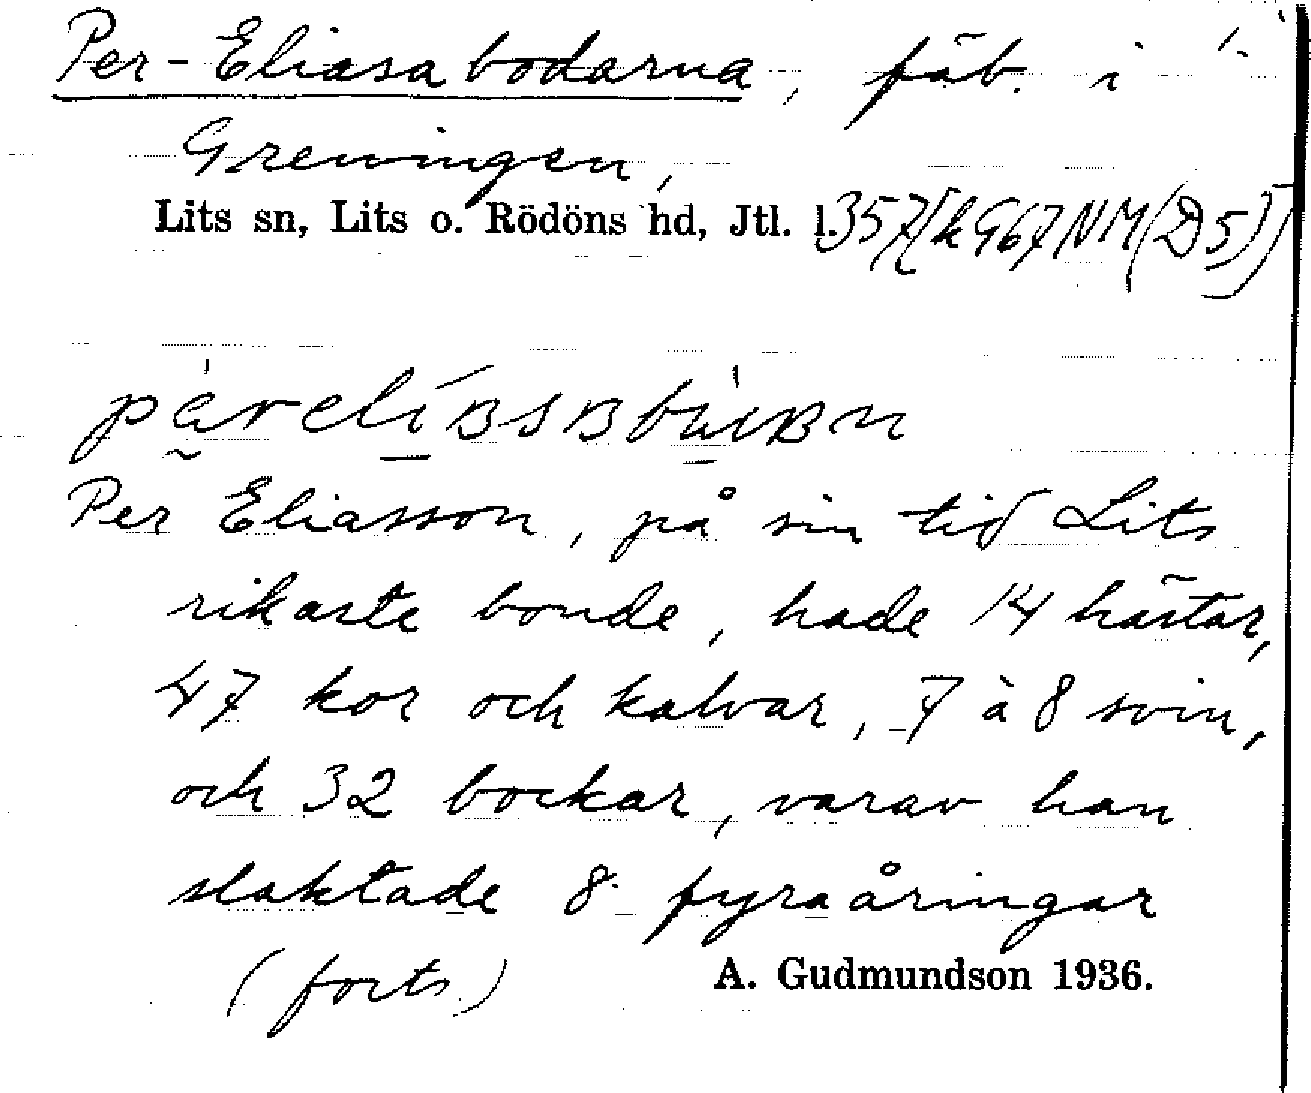 Per-Eliasabodarna, fäb. i
Greningen,
Lits sn, Lits o. Rödöns hd, Jtl. l. 357[k967NM(D5)]
Per Eliasson, på sin tid Lits
rikaste bonde, hade 14 hästar,
47 kor och kalvar, 7 à 8 svin,
och 32 bockar, varav han
slaktade 8 fyraåringar
(forts.) A. Gudmundson 1936.